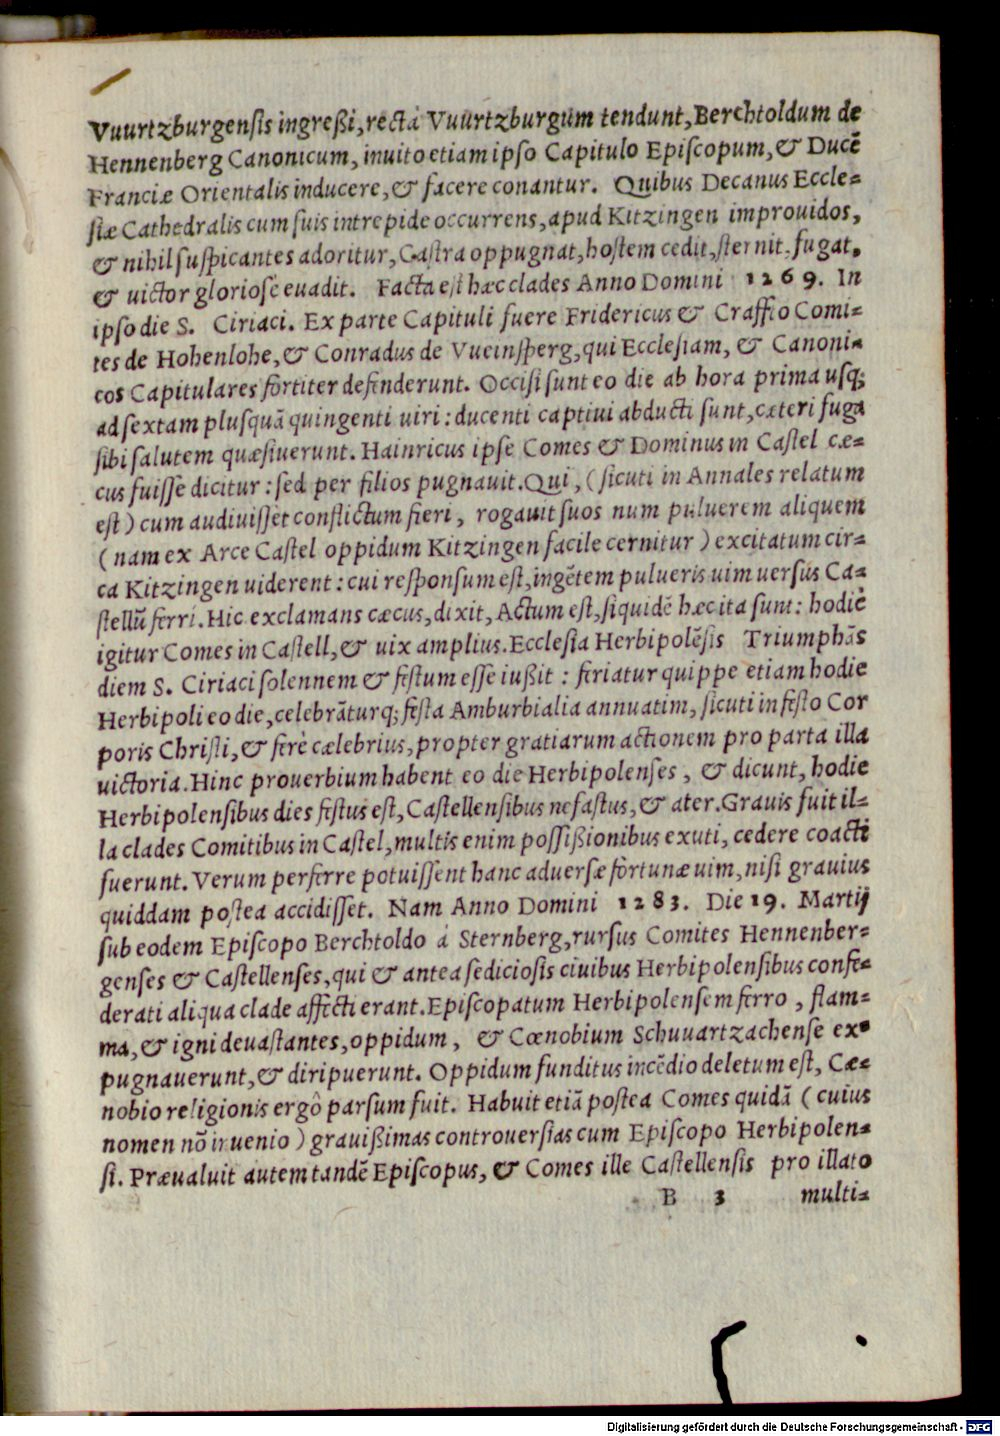 Vuurtzburgensis ingreßi, rectà Vuurtzburgum tendunt, Berchtoldum de
Hennenberg Canonicum, inuito etiam ipso Capitulo Episcopum, & Ducē
Franciæ Orientalis inducere, & facere conantur. Quibus Decanus Eccle=
siæ Cathedralis cum suis intrepide occurrens, apud Kitzingen improuidos,
& nihil suspicantes adoritur, Castra oppugnat, hostem cedit, sternit, fugat,
& uictor gloriosè euadit. Facta est hæc clades Anno Domini 1269. In
ipso die S. Ciriaci. Ex parte Capituli fuere Fridericus & Craffto Comi=
tes de Hohenlohe, & Conradus de Vueinsperg, qui Ecclesiam, & Canoni=
cos Capitulares fortiter defenderunt. Occisi sunt eo die ab hora prima usq;
ad sextam plusquā quingenti uiri: ducenti captiui abducti sunt, cæteri fuga
sibi salutem quæsiuerunt. Hainricus ipse Comes & Dominus in Castel cæ=
cus fuisse dicitur: sed per filios pugnauit. Qui, (sicuti in Annales relatum
est) cum audiuisset conflictum fieri, rogauit suos num puluerem aliquem
(nam ex Arce Castel oppidum Kitzingen facile cernitur) excitatum cir=
ca Kitzingen uiderent: cui responsum est, ingētem pulueris uim uersus Ca=
stellū ferri. Hic exclamans cæcus, dixit, Actum est, siquidē hæc ita sunt: hodie
igitur Comes in Castell, & uix amplius. Ecclesia Herbipolēsis Triumphās
diem S. Ciriaci solennem & festum esse iußit: feriatur quippe etiam hodie
Herbipoli eo die, celebrāturq; festa Amburbialia annuatim, sicuti in festo Cor
poris Christi, & ferè cælebrius, propter gratiarum actionem pro parta illa
uictoria. Hinc prouerbium habent eo die Herbipolenses, & dicunt, hodie
Herbipolensibus dies festus est, Castellensibus nefastus, & ater. Grauis fuit il=
la clades Comitibus in Castel, multis enim possißionibus exuti, cedere coacti
fuerunt. Verum perferre potuissent hanc aduersæ fortunæ uim, nisi grauius
quiddam postea accidisset. Nam Anno Domini 1283. Die 19. Martij
sub eodem Episcopo Berchtoldo á Sternberg, rursus Comites Hennenber=
genses & Castellenses, qui & antea sediciosis ciuibus Herbipolensibus confe=
derati aliqua clade affecti erant. Episcopatum Herbipolensem ferro, flam=
ma, & igni deuastantes, oppidum, & Cœnobium Schuuartzachense ex=
pugnauerunt, & diripuerunt. Oppidum funditus incēdio deletum est, Cæ=
nobio religionis ergô parsum fuit. Habuit etiā postea Comes quidā (cuius
nomen nō inuenio) grauißimas controuersias cum Episcopo Herbipolen=
si. Præualuit autem tandē Episcopus, & Comes ille Castellensis pro illato
B 3 multi=
Digitalisierung gefördert durch die Deutsche Forschungsgemeinschaft - DFG